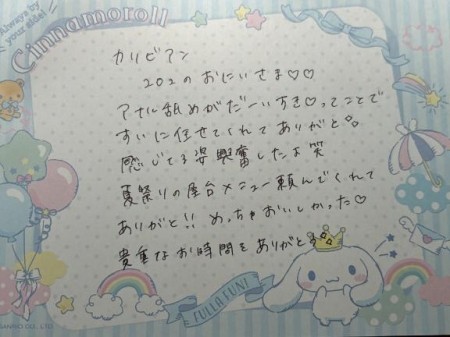 Always by
your side!
Cinnamoroll
カリビアン
202のおにいさま♡♡
アナル舐めがだーいすき♡ってことで
すいに任せてくれてありがと。
感じてる姿興奮したよ笑
夏祭りの屋台メニュー頼んでくれて
ありがと!! めっちゃおいしかった♡
貴重なお時間をありがと
FULLA FUN!